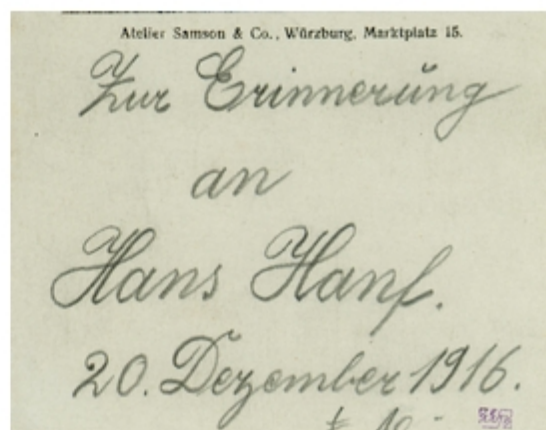 Atelier Samson & Co., Würzburg, Marktplatz 15.
Zur Erinnerung
an
Hans Hanf.
20. Dezember 1916.